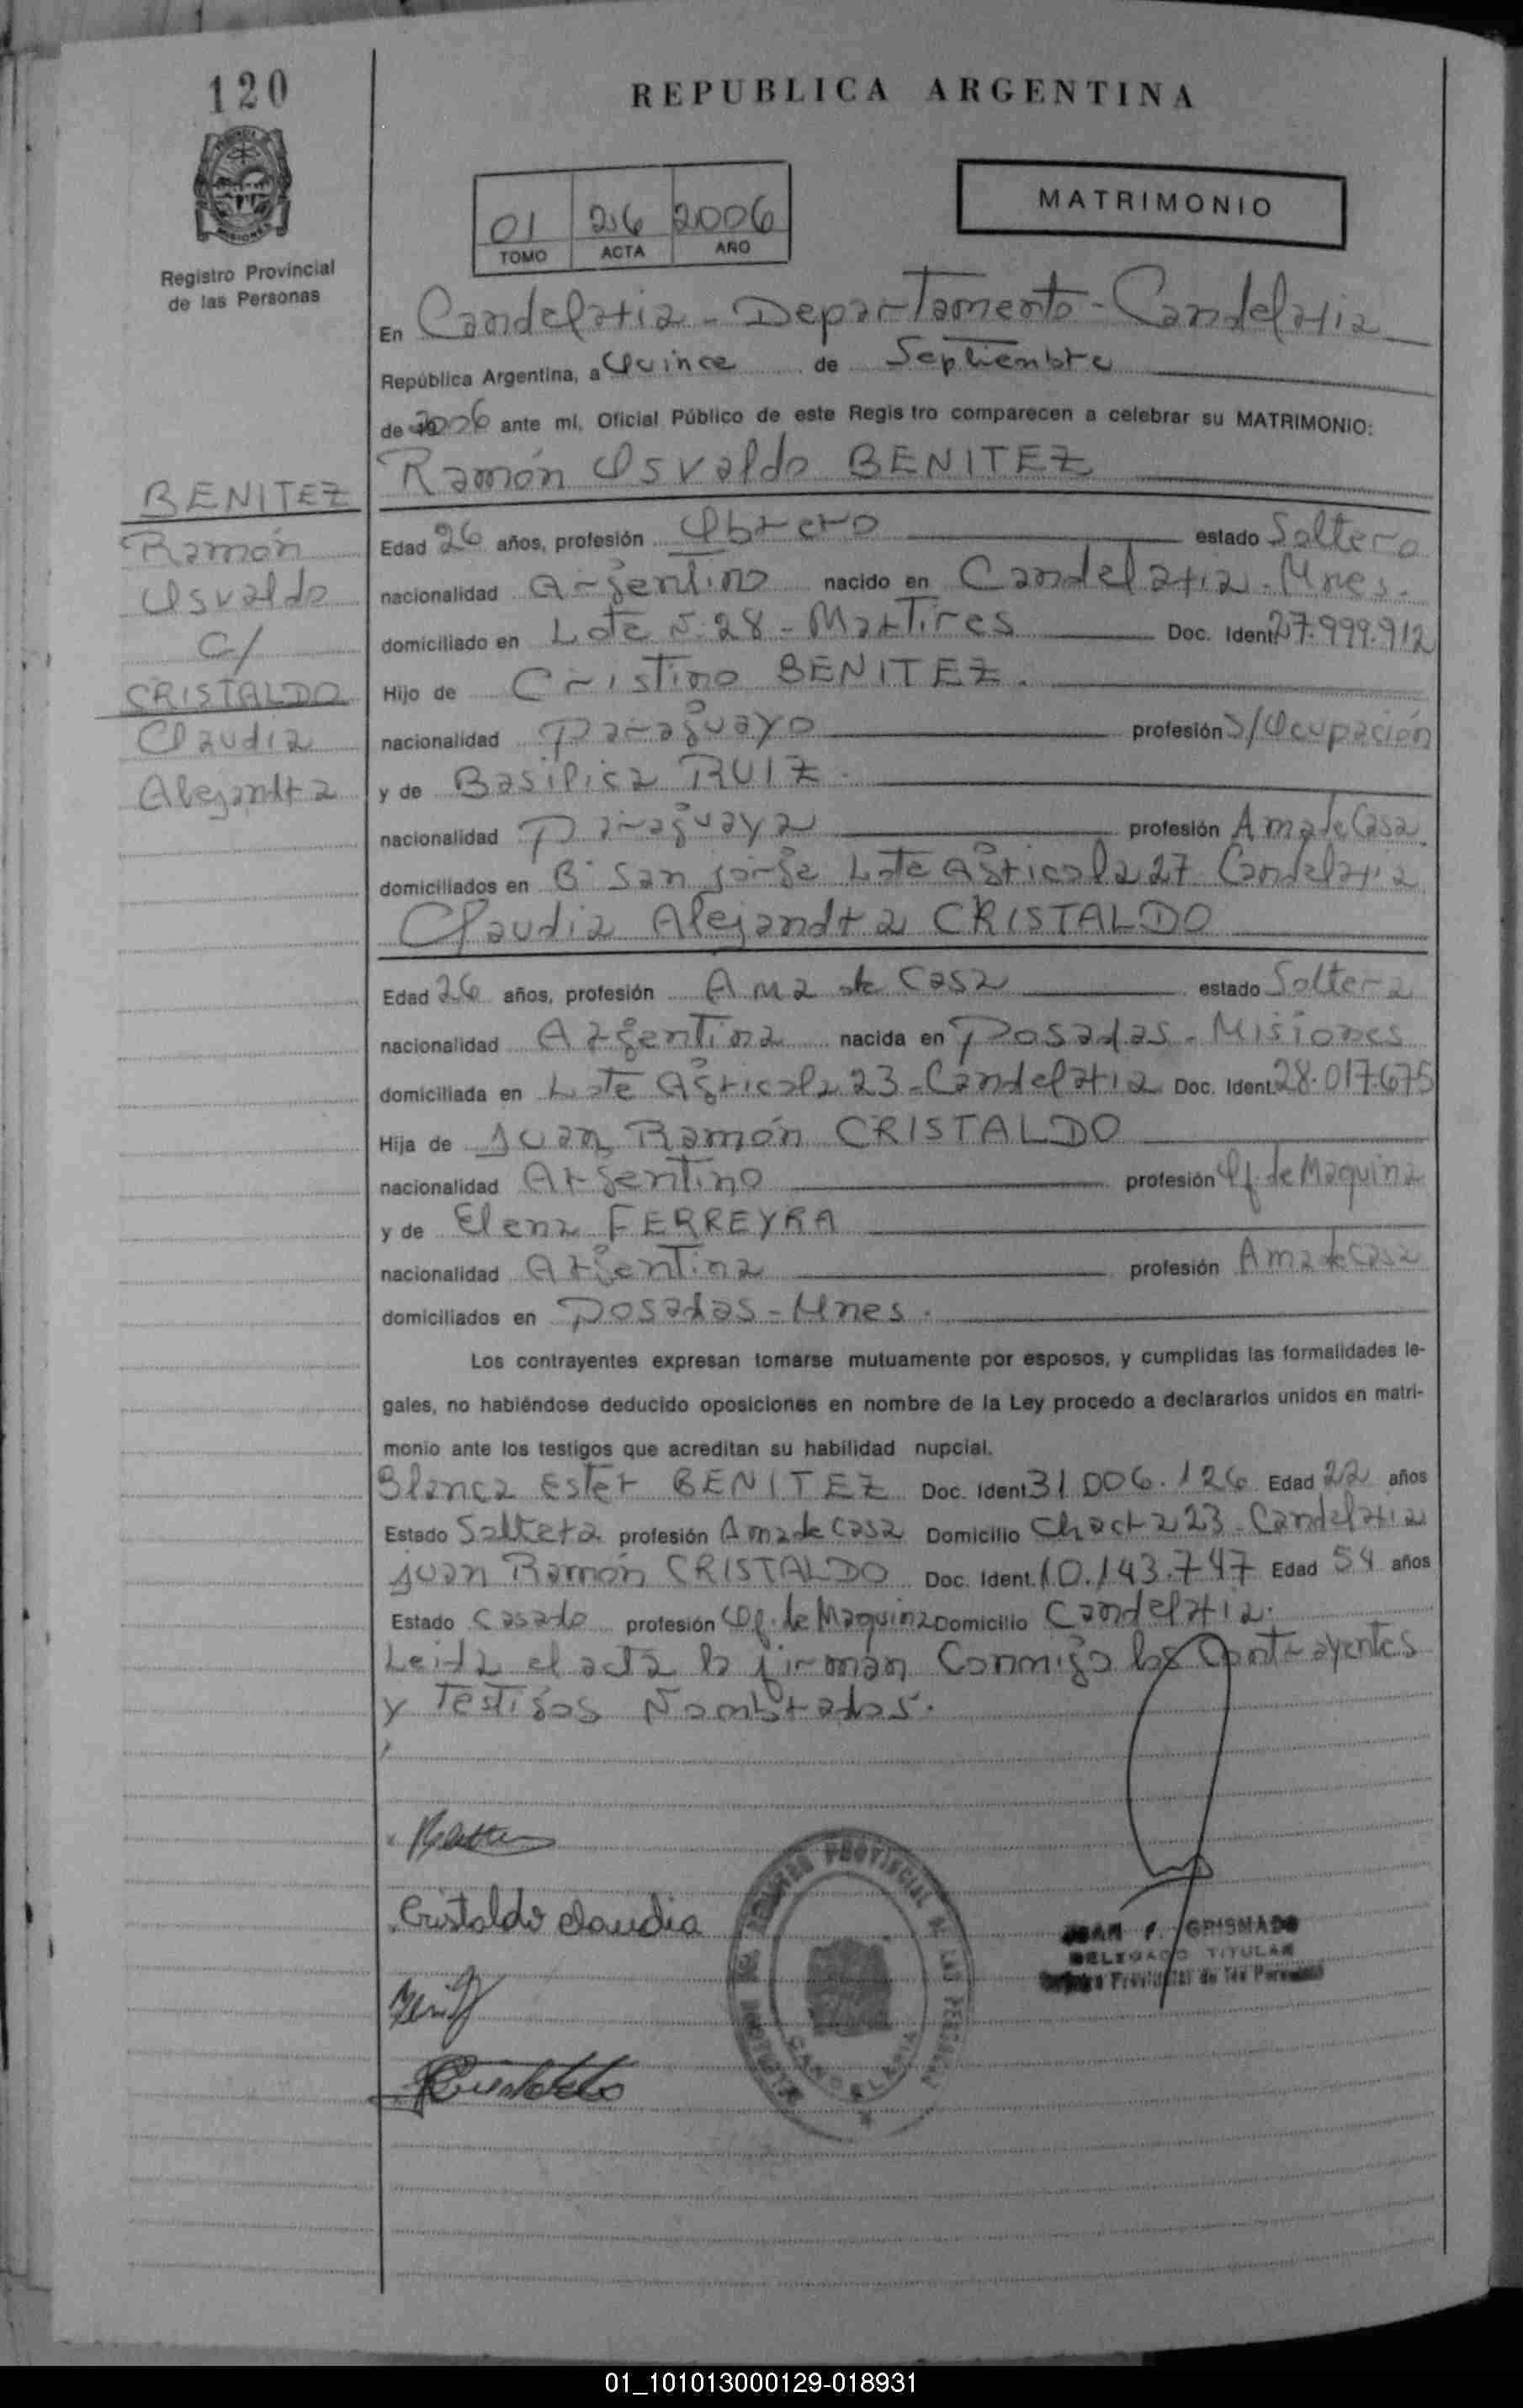 120
REPUBLICA ARGENTINA
MISIONES
Registro Provincial
de las Personas
01 26 2006
TOMO ACTA AÑO
MATRIMONIO
En Candelaria - Departamento - Candelaria
República Argentina, a Quince de Septiembre
de 2006 ante mi, Oficial Público de este Regis tro comparecen a celebrar su MATRIMONIO:
Ramón Osvaldo BENITEZ
BENITEZ
Ramón
Osvaldo
C/
CRISTALDO
Claudia
Alejandra
Edad 26 años, profesión Obrero estado Soltero
nacionalidad Argentino nacido en Candelaria - Mnes.
domiciliado en Lote N. 28 - Martires Doc. Ident. 27.999.912
Hijo de Cristino BENITEZ.
nacionalidad Paraguayo profesión S/Ocupación
y de Basilica RUIZ.
nacionalidad Paraguaya profesión Ama de Casa
domiciliados en B° San Jorge Lote Agricola 27 Candelaria
Claudia Alejandra CRISTALDO
Edad 26 años, profesión Ama de Casa estado Soltera
nacionalidad Argentina nacida en Posadas - Misiones
domiciliada en Lote Agricola 23 - Candelaria Doc. Ident. 28.017.675
Hija de Juan Ramón CRISTALDO
nacionalidad Argentino profesión Of. de Maquina
y de Elena FERREYRA
nacionalidad Argentina profesión Ama de Casa
domiciliados en Posadas - Mnes.
Los contrayentes expresan tomarse mutuamente por esposos, y cumplidas las formalidades le-
gales, no habiéndose deducido oposiciones en nombre de la Ley procedo a declararlos unidos en matri-
monio ante los testigos que acreditan su habilidad nupcial.
Blanca Ester BENITEZ Doc. Ident 31.006.126 Edad 22 años
Estado Soltera profesión Ama de Casa Domicilio Chacra 23 - Candelaria
Juan Ramón CRISTALDO Doc. Ident. 10.143.747 Edad 54 años
Estado Casado profesión Of. de Maquina Domicilio Candelaria.
Leida el acta la firman Conmigo los Contrayentes
y Testigos Nombrados.
Cristaldo Claudia
PROVINCIAL DE LAS PERSONAS
CANDELARIA
JUAN F. GRISMADO
DELEGADO TITULAR
Provincial de las Personas
01_101013000129-018931